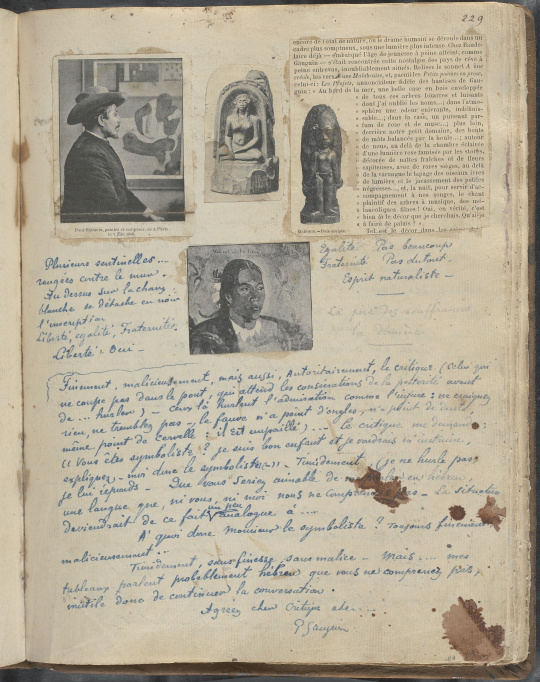 229
encore de l'état de nature, où le drame humain se déroule dans un
cadre plus somptueux, sous une lumière plus intense. Chez Baude-
laire déjà — embarqué l'âge du jeunesse à peine atteint, comme
Gauguin — s'était rencontrée cette nostalgie des pays de rêve à
peine entrevus, inoubliablement aimés. Relisez le sonnet A une
créole, les vers d'une Malabaraise, et, parmi les Petits poèmes en prose,
celui-ci : Les Projets, annonciateur fidèle des hantises de Gau-
guin : « Au bord de la mer, une belle case en bois enveloppée
de tous ces arbres bizarres et luisants
dont j'ai oublié les noms...; dans l'atmo-
sphère une odeur enivrante, indéfinis-
sable...; dans la case, un puissant par-
fum de rose et de musc...; plus loin,
derrière notre petit domaine, des bouts
de mâts balancés par la houle...; autour
de nous, au delà de la chambre éclairée
d'une lumière rose tamisée par les stores,
décorée de nattes fraîches et de fleurs
capiteuses, avec de rares sièges, au delà
de la varangue le tapage des oiseaux ivres
de lumière et le jacassement des petites
négresses..., et, la nuit, pour servir d'ac-
compagnement à nos songes, le chant
plaintif des arbres à musique, des mé-
lancoliques filaos ! Oui, en vérité, c'est
bien là le décor que je cherchais. Qu'ai-je
à faire de palais ? »
Tel est le décor dans les
Paul Gauguin, peintre et sculpteur, né à Paris,
le 7 Juin 1848.
Plusieurs sentinelles...
rangées contre le mur.
Au dessus sur la chaux
blanche se détache en noir
l'inscription
Liberté, egalité, Fraternité.
Liberté : Oui —
Egalité Pas beaucoup
Fraternité Pas du tout.
Esprit naturaliste —
Finement, malicieusement, mais aussi, autoritairement, le critique (Celui qui
ne coupe pas dans le pont, qui attend les consécrations de la postérité avant
de ... hurler) — ceux là hurlent l'admiration comme l'injure : ne craignez
rien, ne tremblez pas — le fauve n'a point d'ongles, n'a point de dents,
même point de cervelle : il est empaillé) ... le critique me demande :
(( Vous êtes symboliste ? je suis bon enfant et je voudrais m'instruire,
expliquez-moi donc le symbolisme )) — Timidement (je ne hurle pas
je lui réponds — Que vous seriez aimable de me parler en hébreu,
une langue que, ni vous, ni moi nous ne comprenons pas — La situation
deviendrait de ce fait un peu analogue à ...
A quoi donc Monsieur le symboliste ? Toujours finement
malicieusement ..
Timidement, sans finesse, sans malice — Mais ... mes
tableaux parlent probablement hébreu que vous ne comprenez pas,
inutile donc de continuer la conversation.
Agréez cher Critique etc....
P Gauguin